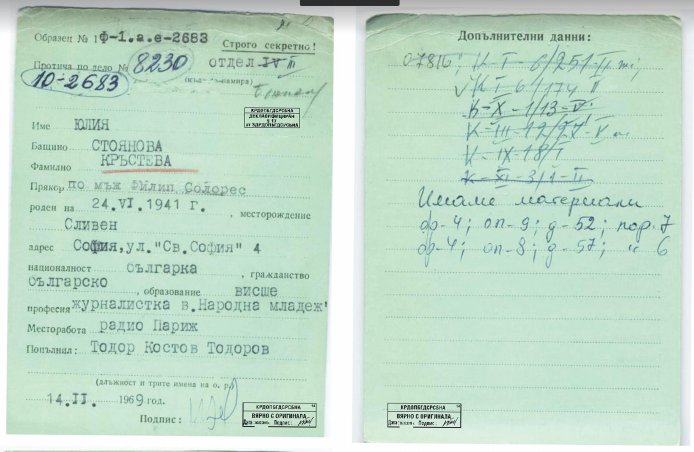 Образец № 1 ф-1.а.е-2683
Строго секретно!
Протича по дело № 8230 отдел IV III
10-2683
КРДОПБГДСРСБНА
ДЕКЛАСИФИЦИРАН
Име ЮЛИЯ
Бащино СТОЯНОВА
Фамилно КРЪСТЕВА
Прякор по мъж Филип Солорес
роден на 24.VI.1941 г. , месторождение
Сливен
адрес София,ул."Св.София" 4
националност българка , гражданство
българско , образование висше
професия журналистка в."Народна младеж"
Месторабота радио Париж
Попълнил: Тодор Костов Тодоров
(длъжност и трите имена на о. р.)
14.II. 1969 год.
Подпис:
КРДОПБГДСРСБНА
ВЯРНО С ОРИГИНАЛА
Подпис:
Допълнителни данни:
07816: К-I-6/251-II
К I 6/174 II
К-X-1/13-VI
К-III-12/27-V
К-IX-18/I
К-XI-3/1-II
Имаме материали
ф-4; оп-9; д-52; пор. 7
ф-4; оп-8; д-57; " 6
КРДОПБГДСРСБНА
ВЯРНО С ОРИГИНАЛА
Подпис: